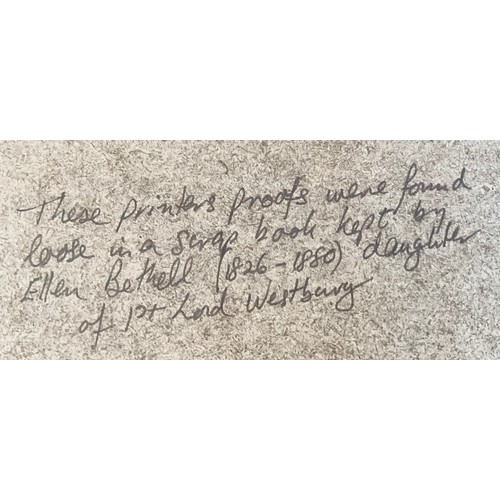 These printers proofs were found
loose in a scrap book kept by
Ellen Bethell (1826-1880) daughter
of 1st Lord Westbury